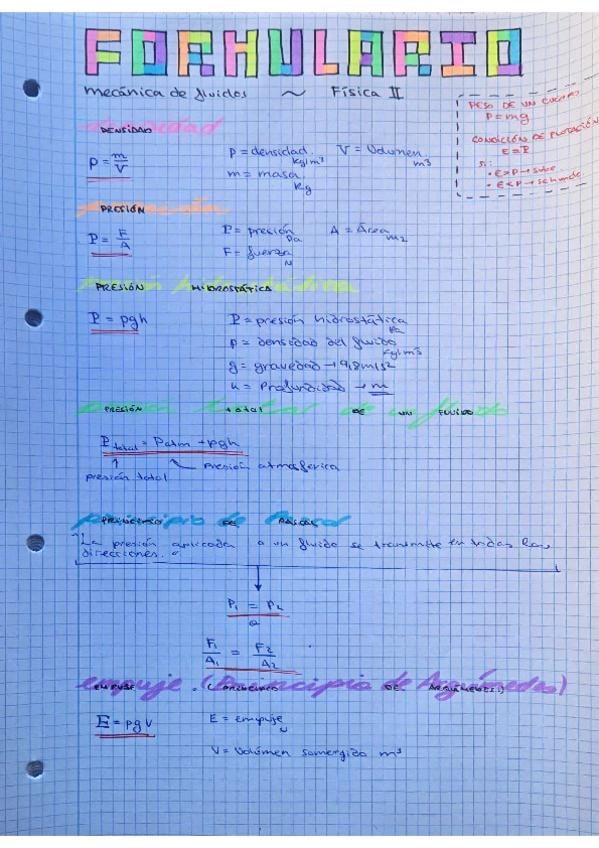 FORMULARIO
mecánica de fluidos ~ Física II
PESO DE UN CUERPO
P=mg
CONDICIÓN DE FLOTACIÓN
E=P
si:
• E>P→sube
• E<P→se hunde
densidad
DENSIDAD
ρ = m/V
ρ = densidad kg/m³ V = Volumen m³
m = masa kg
PRESIÓN
P = F/A
P = presión Pa A = Área m2
F = fuerza N
presión hidrostática
PRESIÓN HIDROSTÁTICA
P = ρgh
P = presión hidrostática Pa
ρ = densidad del fluido kg/m³
g = gravedad → 9,8m/s²
h = Profundidad → m
presión total de un fluido
PRESIÓN total DE UN FLUIDO
P total = Patm + ρgh
presión atmosférica
presión total
principio de Pascal
PRINCIPIO DE PASCAL
"La presión aplicada a un fluido se transmite en todas las
direcciones."
P₁ = P₂
F₁/A₁ = F₂/A₂
empuje (Principio de Arquímedes)
EMPUJE (PRINCIPIO DE ARQUÍMEDES)
E = ρgV
E = empuje N
V = Volúmen sumergido m³